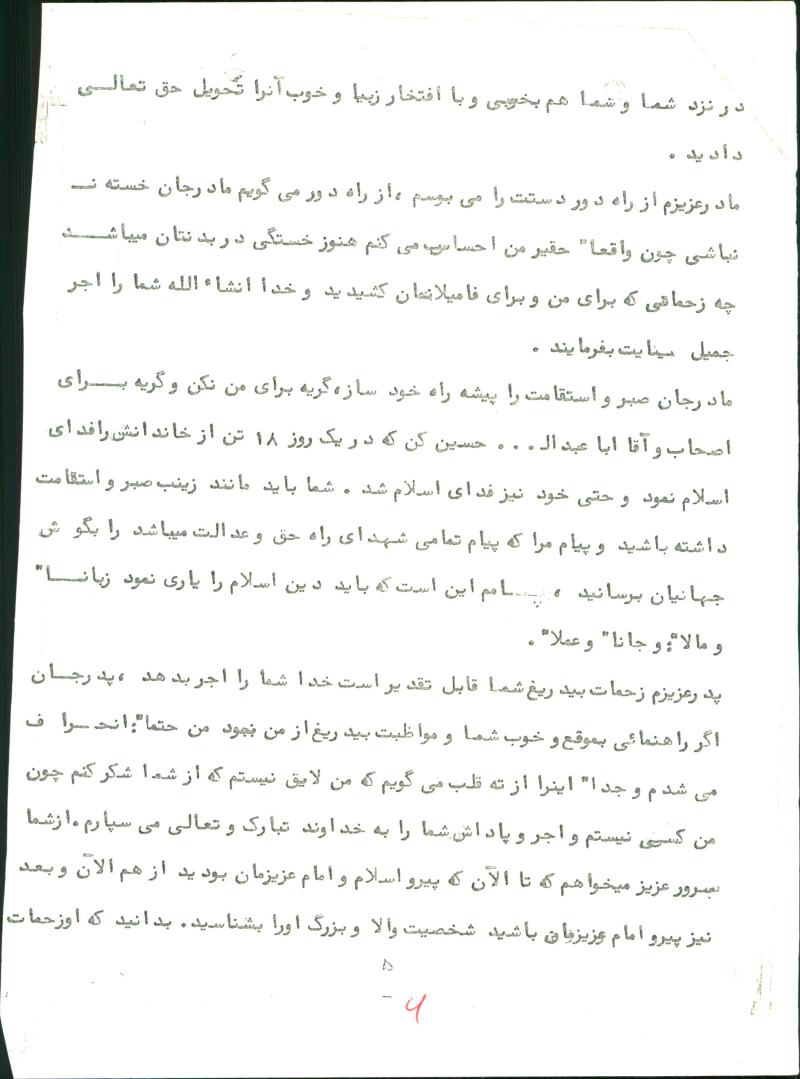 در نزد شما و شما هم بخوبی و با افتخار زیبا و خوب آنرا تحویل حق تعالی
دادید .
مادرعزیزم از راه دور دستت را می بوسم ،از راه دور می گویم مادرجان خسته نـ
نباشی چون واقعا" حقیر من احساس می کنم هنوز خستگی در بدنتان میباشد
چه زحماتی که برای من و برای فامیلانمان کشیدید و خدا انشاء الله شما را اجر
جمیل عنایت بفرمایند .
مادرجان صبر و استقامت را پیشه راه خود ساز،گریه برای من نکن و گریه برای
اصحاب و آقا ابا عبدالـ . . . حسین کن که در یک روز ۱۸ تن از خاندانش رافدای
اسلام نمود و حتی خود نیز فدای اسلام شد . شما باید مانند زینب صبر و استقامت
داشته باشید و پیام مرا که پیام تمامی شهدای راه حق و عدالت میباشد را بگو ش
جهانیان برسانید ، پیامم این است که باید دین اسلام را یاری نمود زبانا"
و مالا" و جانا" و عملا" .
پدرعزیزم زحمات بیدریغ شما قابل تقدیر است خدا شما را اجر بدهد ،پدرجان
اگر راهنمائی بموقع و خوب شما و مواظبت بیدریغ از من نبود من حتما" انحرا ف
می شدم و جدا" اینرا از ته قلب می گویم که من لایق نیستم که از شما شکر کنم چون
من کسی نیستم و اجر و پاداش شما را به خداوند تبارک و تعالی می سپارم .ازشما
سرور عزیز میخواهم که تا الآن که پیرو اسلام و امام عزیزمان بودید از هم الآن و بعد
نیز پیرو امام عزیزمان باشید شخصیت والا و بزرگ اورا بشناسید. بدانید که اوزحمات
۵
۴